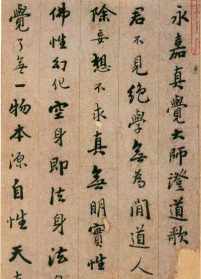 永嘉真覺大師證道歌
君不見絕學無為閒道人
除妄想不求真無明實性
佛性幻化空身即法身法
覺了無一物本源自性天